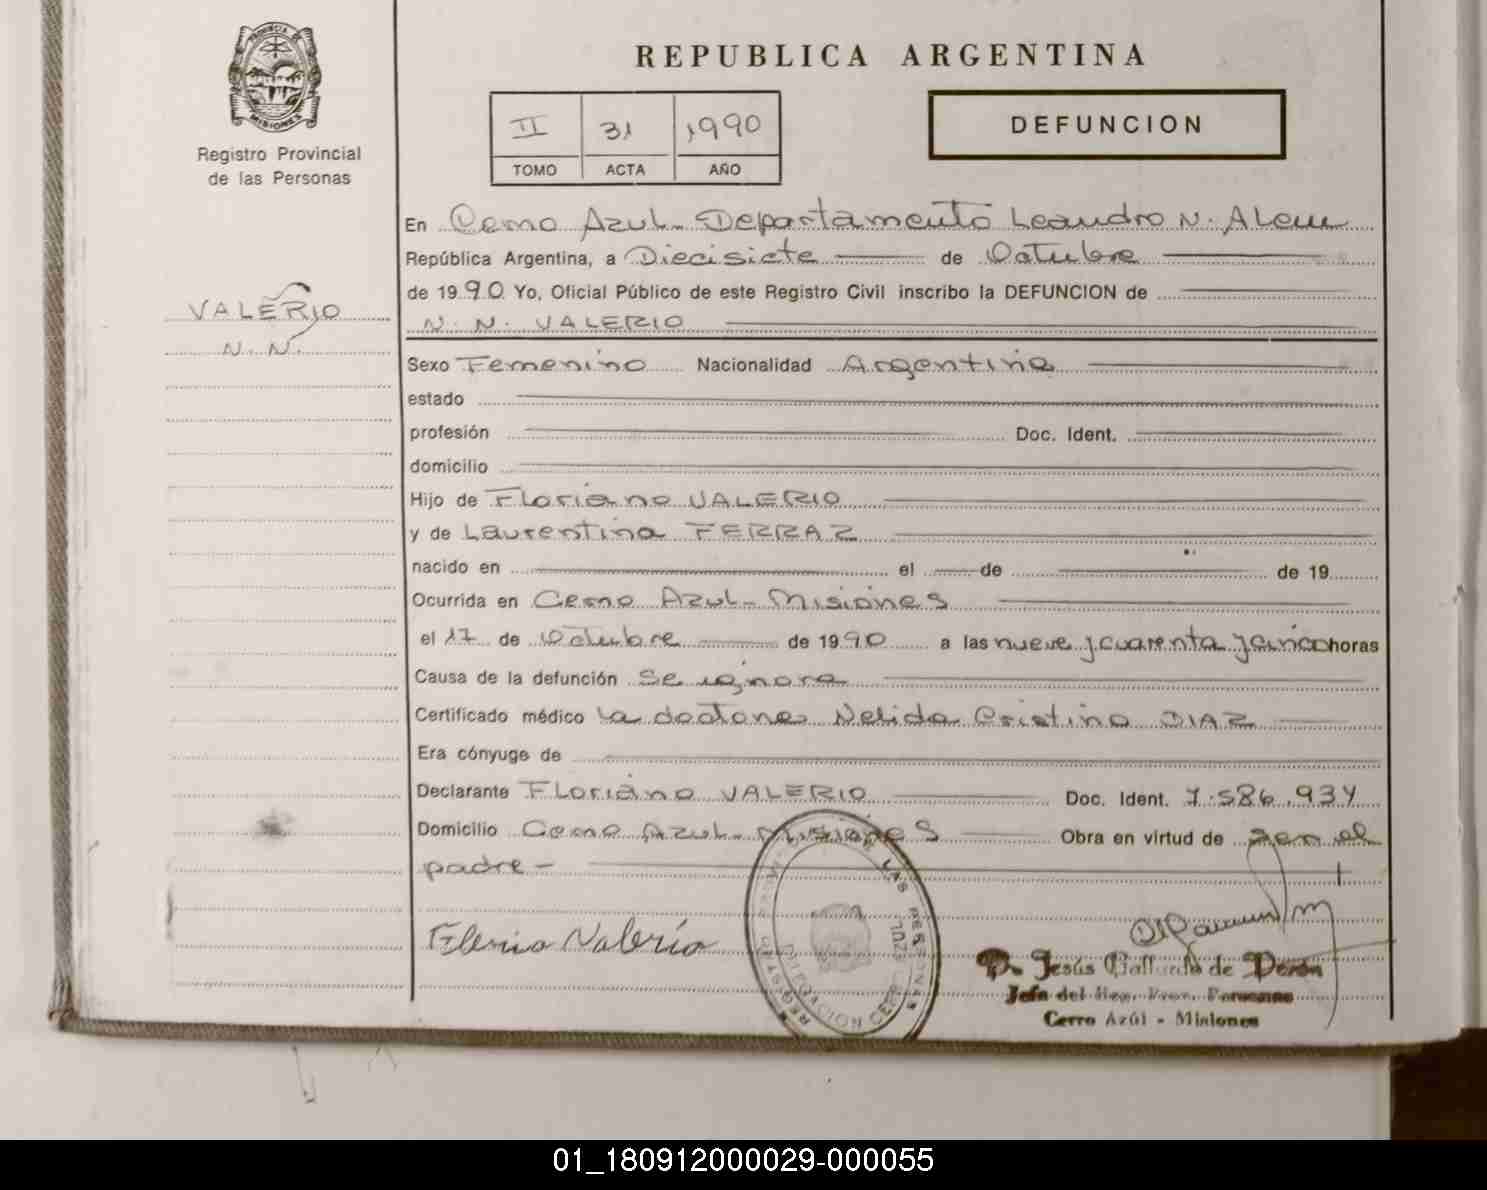 PROVINCIA DE
MISIONES
Registro Provincial
de las Personas
VALERIO
N. N.
REPUBLICA ARGENTINA
II 31 1990
TOMO ACTA AÑO
DEFUNCION
En Cerro Azul - Departamento Leandro N. Alem
República Argentina, a Diecisiete de Octubre
de 1990 Yo, Oficial Público de este Registro Civil inscribo la DEFUNCION de
N. N. VALERIO
Sexo Femenino Nacionalidad Argentina
estado
profesión Doc. Ident.
domicilio
Hijo de Floriano VALERIO
y de Laurentina FERRAZ
nacido en el de de 19
Ocurrida en Cerro Azul - Misiones
el 17 de Octubre de 1990 a las nueve y cuarenta y cinco horas
Causa de la defunción Se ignora
Certificado médico la doctora Nelida Cristina DIAZ
Era cónyuge de
Declarante Floriano VALERIO Doc. Ident. 7.586.934
Domicilio Cerro Azul - Misiones Obra en virtud de ser el
padre -
Valerio
REGISTRO LAS PERSONAS
DELEGACION CERRO AZUL
Jesús de Perón
Jefa del Reg. Prov. Personas
Cerro Azúl - Misiones
01_180912000029-000055